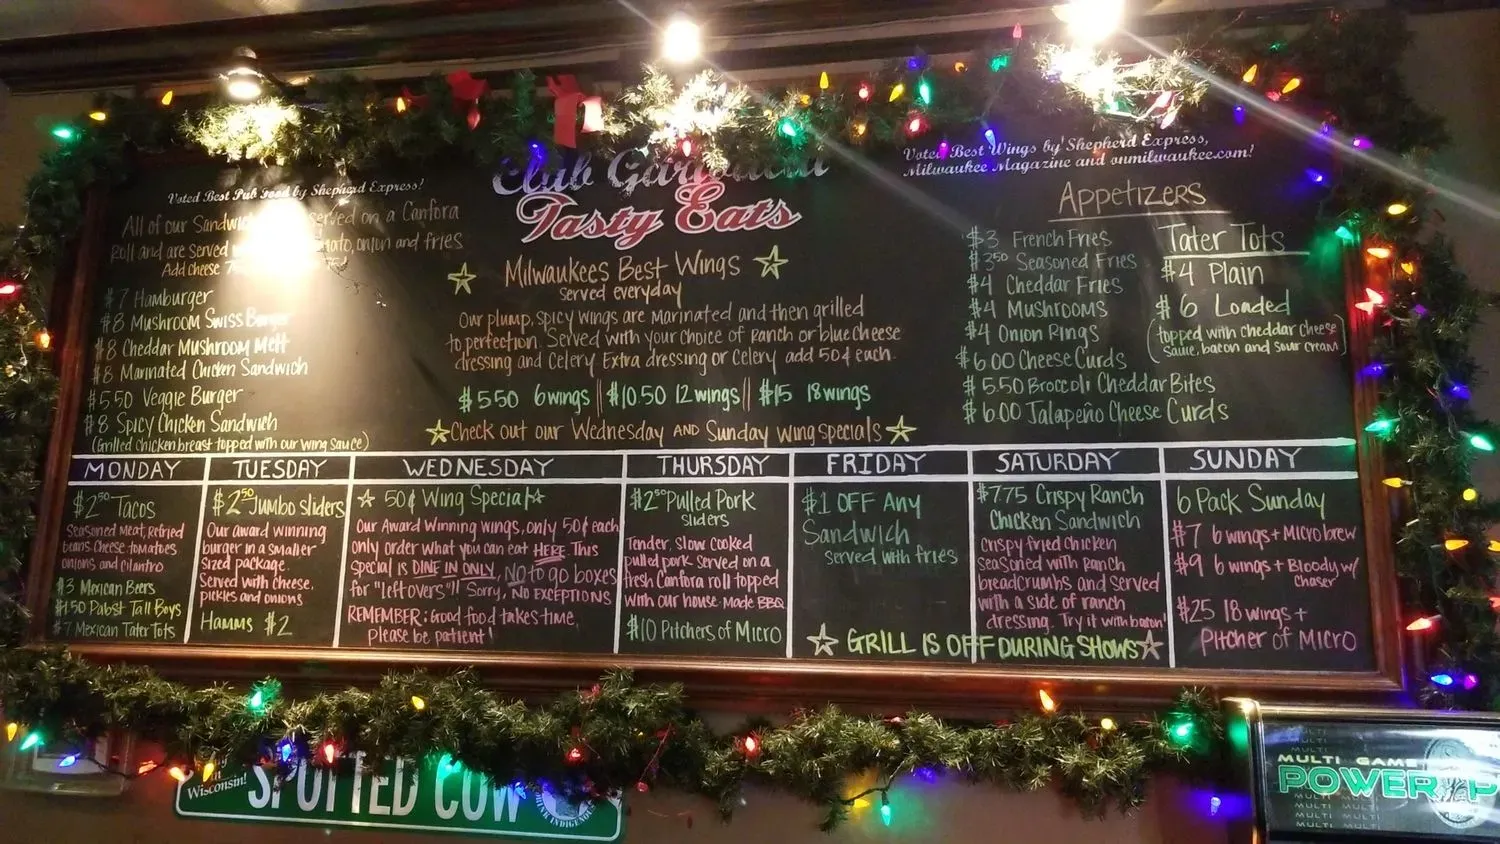 Voted Best Pub Food by Shepherd Express!
All of our served on a Canfora
Roll and are served onion and fries
Add cheese
$7 Hamburger
$8 Mushroom Swiss Burger
$8 Cheddar Mushroom Melt
$8 Marinated Chicken Sandwich
$5.50 Veggie Burger
$8 Spicy Chicken Sandwich
(Grilled chicken breast topped with our wing sauce)
Club Garibaldi
Tasty Eats
Milwaukees Best Wings
served everyday
Our plump, spicy wings are marinated and then grilled
to perfection. Served with your choice of Ranch or blue cheese
dressing and celery Extra dressing or celery add 50¢ each.
$5.50 6 wings || $10.50 12 wings || $15 18 wings
Check out our Wednesday and Sunday wing specials
Voted Best Wings by Shepherd Express,
Milwaukee Magazine and onmilwaukee.com!
Appetizers
$3 French Fries
$3.50 Seasoned Fries
$4 Cheddar Fries
$4 Mushrooms
$4 Onion Rings
$6.00 Cheese Curds
$5.50 Broccoli Cheddar Bites
$6.00 Jalapeño Cheese Curds
Tater Tots
$4 Plain
$6 Loaded
(topped with cheddar cheese
sauce, bacon and sour cream)
MONDAY
$2.50 Tacos
Seasoned Meat, Refried
beans cheese tomatoes
onions and cilantro
$3 Mexican Beers
$1.50 Pabst Tall Boys
$7 Mexican Tater Tots
TUESDAY
$2.50 Jumbo Sliders
Our award winning
burger in a smaller
sized package.
Served with cheese,
pickles and onions
Hamms $2
WEDNESDAY
50¢ Wing Special
Our Award Winning wings, only 50¢ each
only order what you can eat HERE. This
special is DINE IN ONLY, NO to go boxes
for "leftovers"!! Sorry, NO EXCEPTIONS
REMEMBER: Good food takes time,
please be patient!
THURSDAY
$2.50 Pulled Pork
sliders
Tender, slow cooked
pulled pork served on a
fresh Canfora roll topped
with our house made BBQ
$10 Pitchers of Micro
FRIDAY
$1 OFF Any
Sandwich
served with fries
SATURDAY
$7.75 Crispy Ranch
Chicken Sandwich
crispy fried chicken
seasoned with ranch
breadcrumbs and served
with a side of ranch
dressing. Try it with bacon!
GRILL IS OFF DURING SHOWS
SUNDAY
6 Pack Sunday
$7 6 wings + Micro brew
$9 6 wings + Bloody w/
chaser
$25 18 wings +
Pitcher of Micro
Wisconsin!
SPOTTED COW
DRINK INDIGENOUS
MULTI GAME
POWER
MULTI MULTI
MULTI MULTI
MULTI MULTI